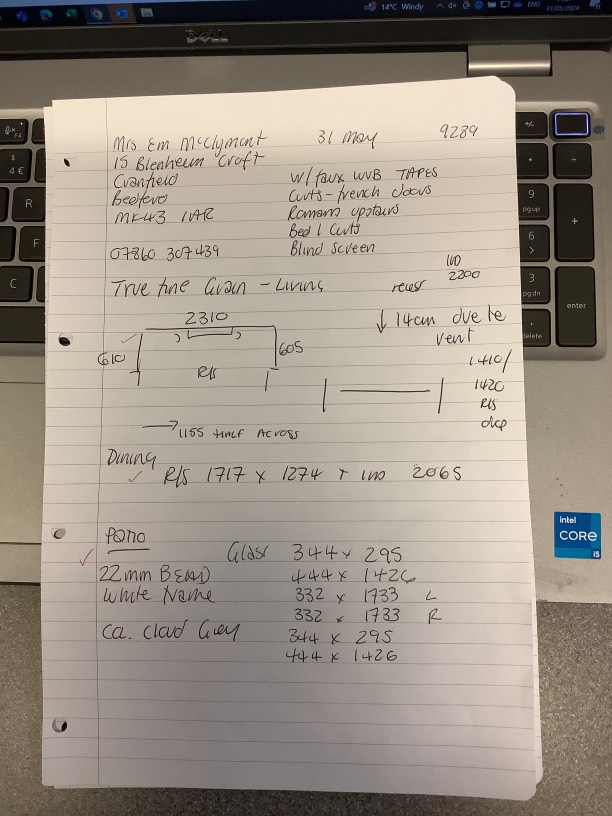 14°C Windy
ENG
31/05/2024
DELL
Mrs Em McClymont 31 May 9289
15 Blenheim Croft
Cranfield w/ faux WVB TAPES
Bedford Curts - french doors
MK43 1AR Romans upstairs
Bed 1 Curts
07860 307439 Blind Screen
True fine Grain - Living recess IWD 2200
2310
↓ 14cm due to vent
610
605
R/S
1410/
1420
R/S
drop
→ 1155 HALF ACROSS
Dining
R/S 1717 x 1274 + IWD 2065
Patio
Glass 344 x 295
22mm BEAD 444 x 1426
White Frame 332 x 1733 L
332 x 1733 R
Ca. Cloud Grey 344 x 295
444 x 1426
$
4 €
F4
R
F
C
+/-
*
-
9
pg up
+
6
>
3
pg dn
enter
delete
intel
CORE
i5